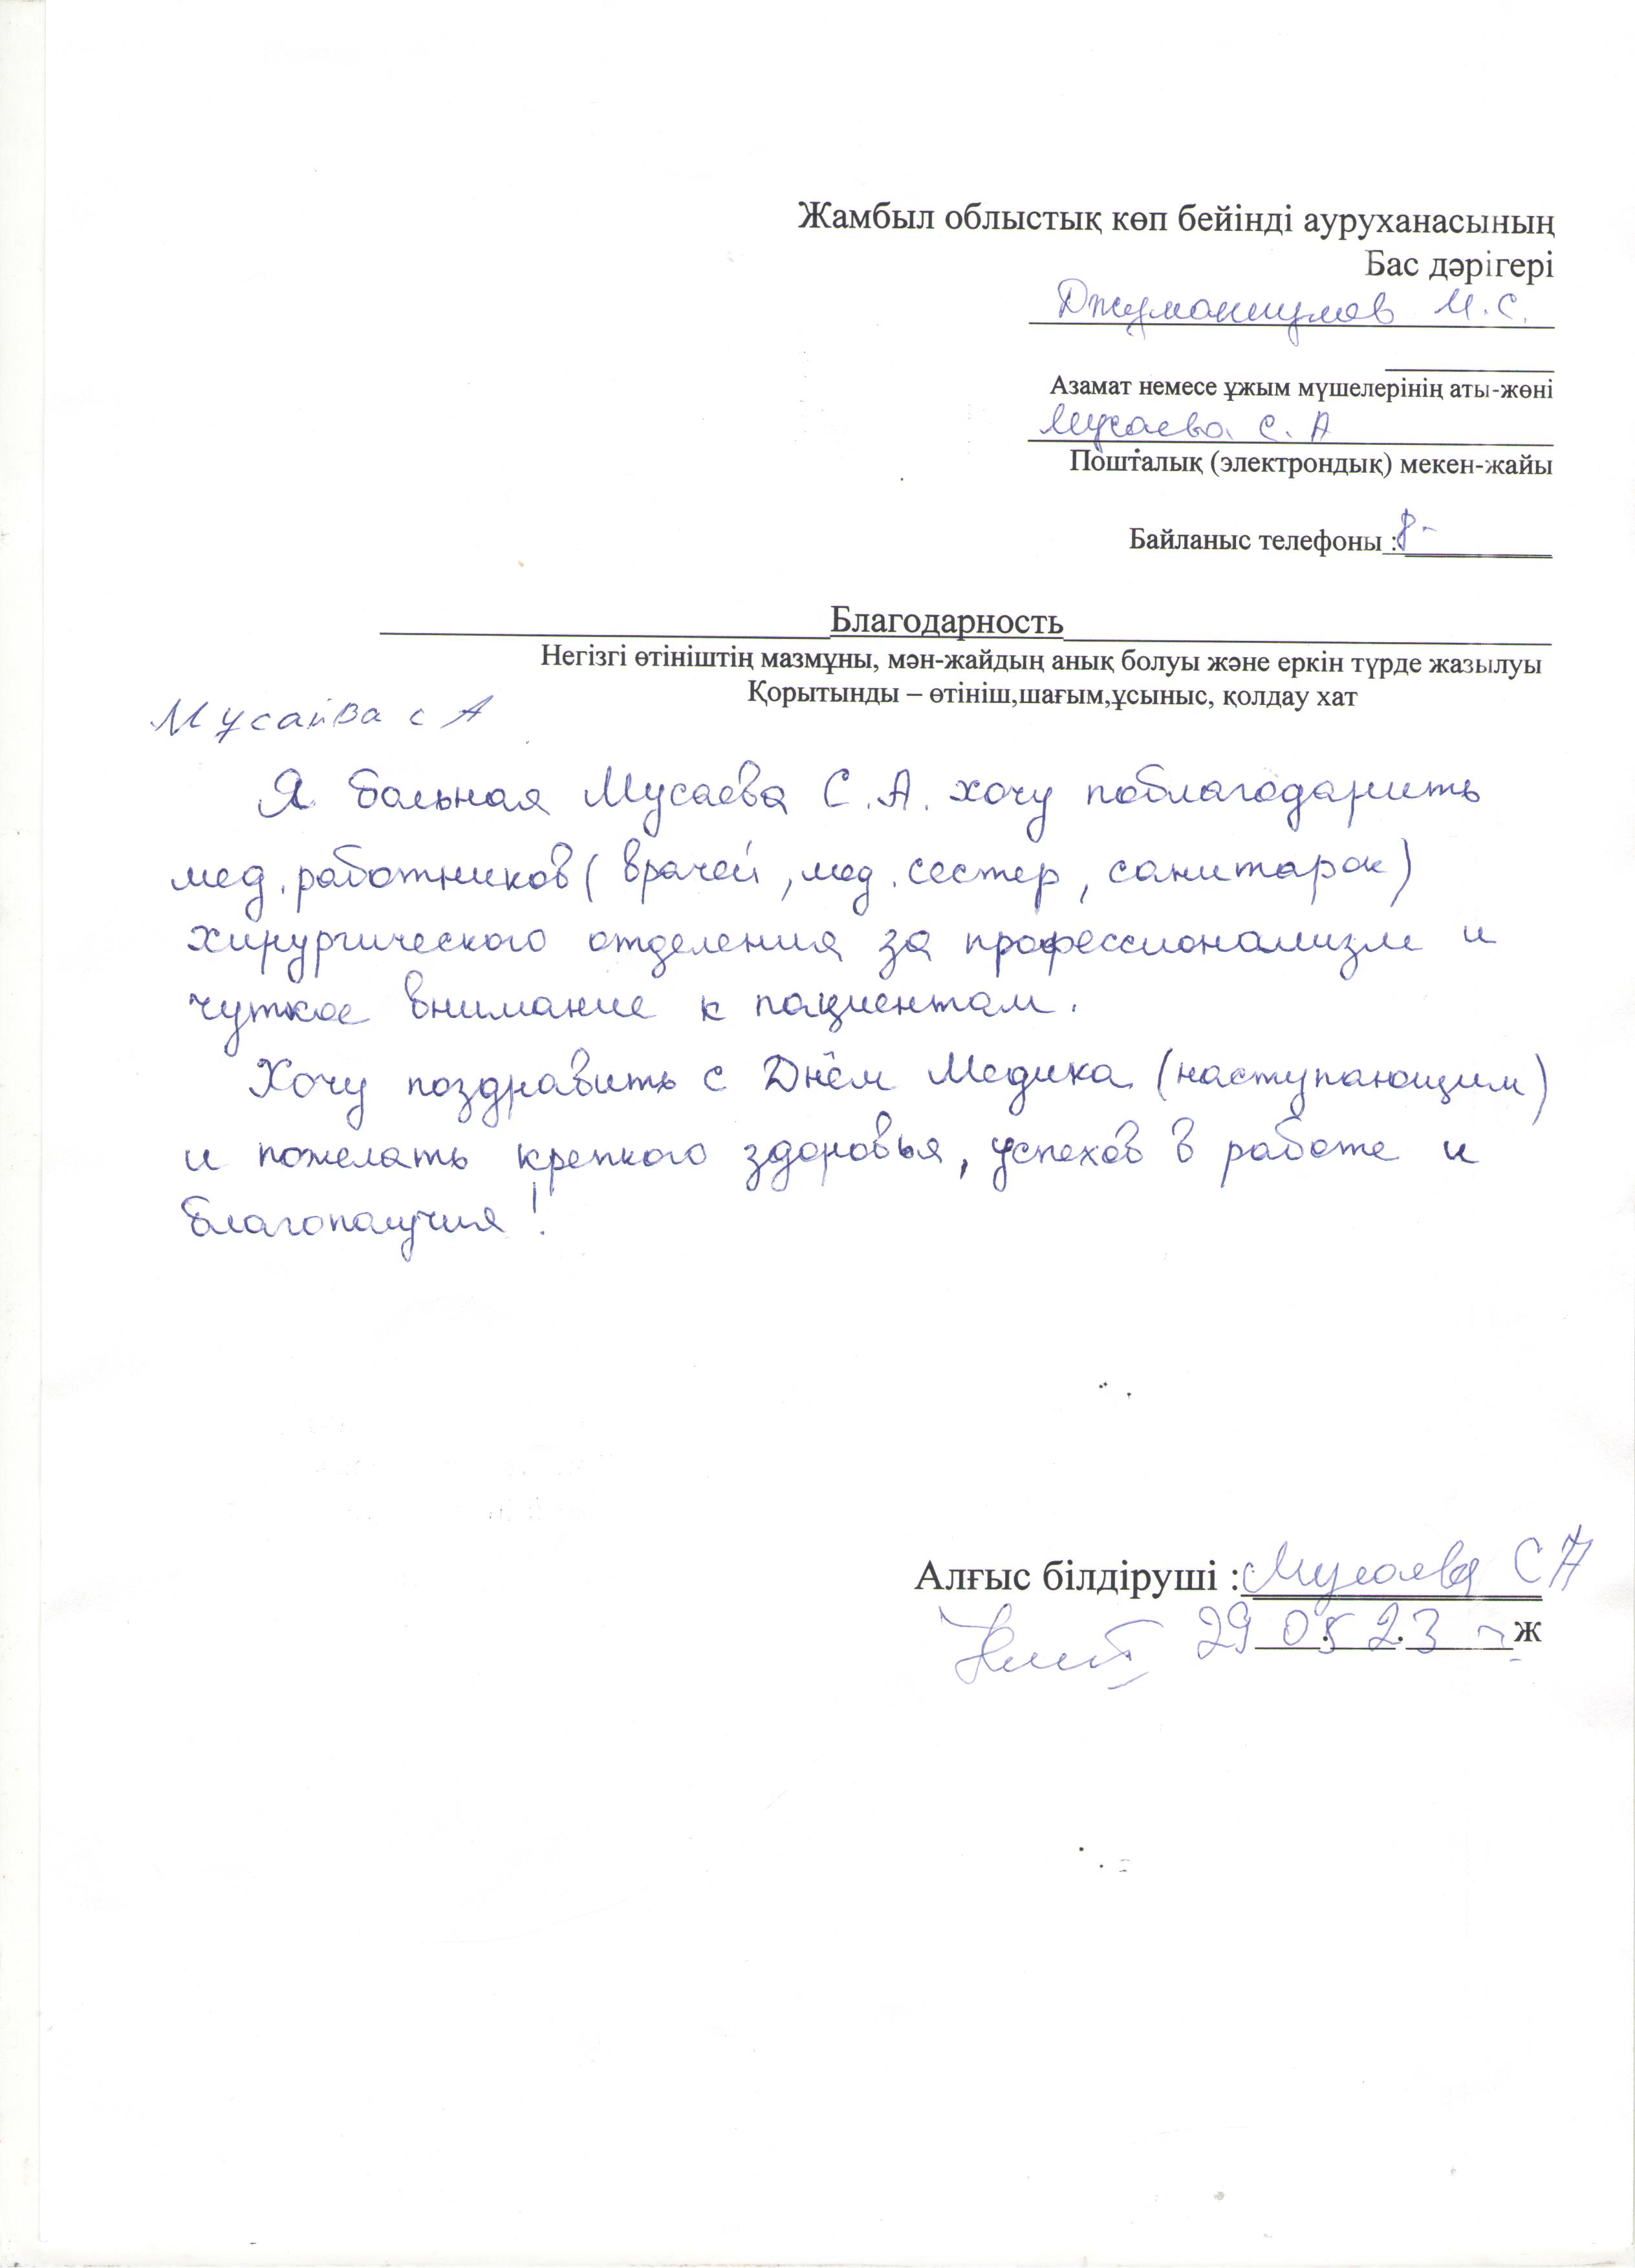 Жамбыл облыстық көп бейінді ауруханасының
Бас дәрігері
М.С.
Азамат немесе ұжым мүшелерінің аты-жөні
Мусаева С. А
Пошталық (электрондық) мекен-жайы
Байланыс телефоны : 8-
Благодарность
Негізгі өтініштің мазмұны, мән-жайдың анық болуы және еркін түрде жазылуы
Қорытынды – өтініш,шағым,ұсыныс, қолдау хат
Мусайва с А
Я больная Мусаева С.А. хочу поблагодарить
мед. работников (врачей, мед. сестер, санитарок)
хирургического отделения за профессионализм и
чуткое внимание к пациентам.
Хочу поздравить с Днём Медика (наступающим)
и пожелать крепкого здоровья, успехов в работе и
благополучия!
Алғыс білдіруші : Мусаева С А
29 05 23 ж